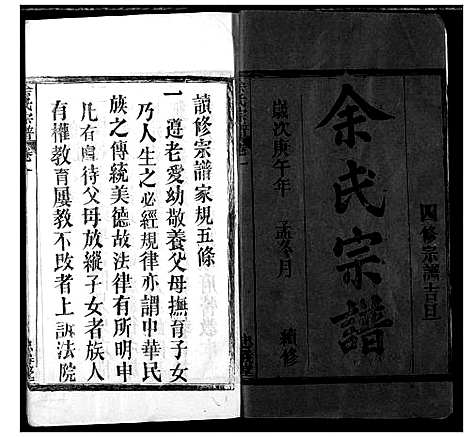 四修宗譜吉旦
余氏宗譜
歲次庚午年 孟冬月
續修
余氏宗譜 卷一
讀修宗譜家規五條
一 尊老愛幼敬養父母撫育子女
乃人生之必經規律亦謂中華民
族之傳統美德故法律有所明申
凡有虐待父母放縱子女者族人
有權教育屢教不改者上訴法院